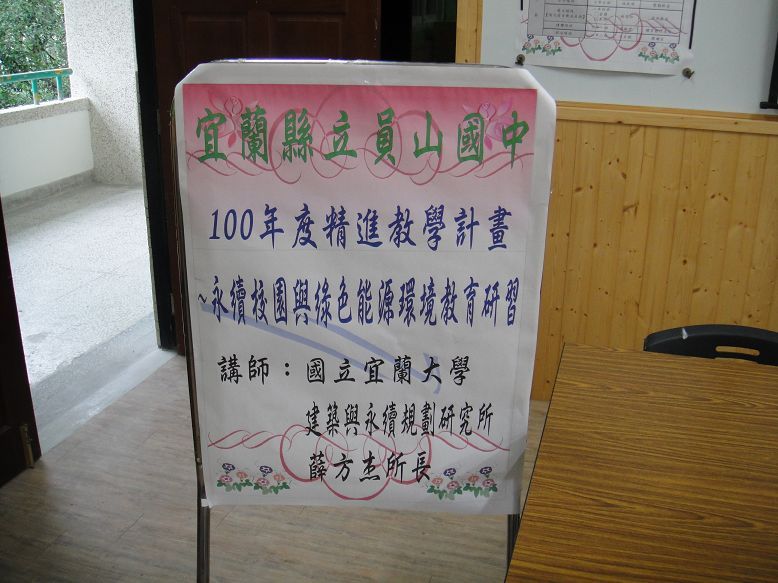 宜蘭縣立員山國中
100年度精進教學計畫
~永續校園與綠色能源環境教育研習
講師：國立宜蘭大學
建築與永續規劃研究所
薛方杰所長